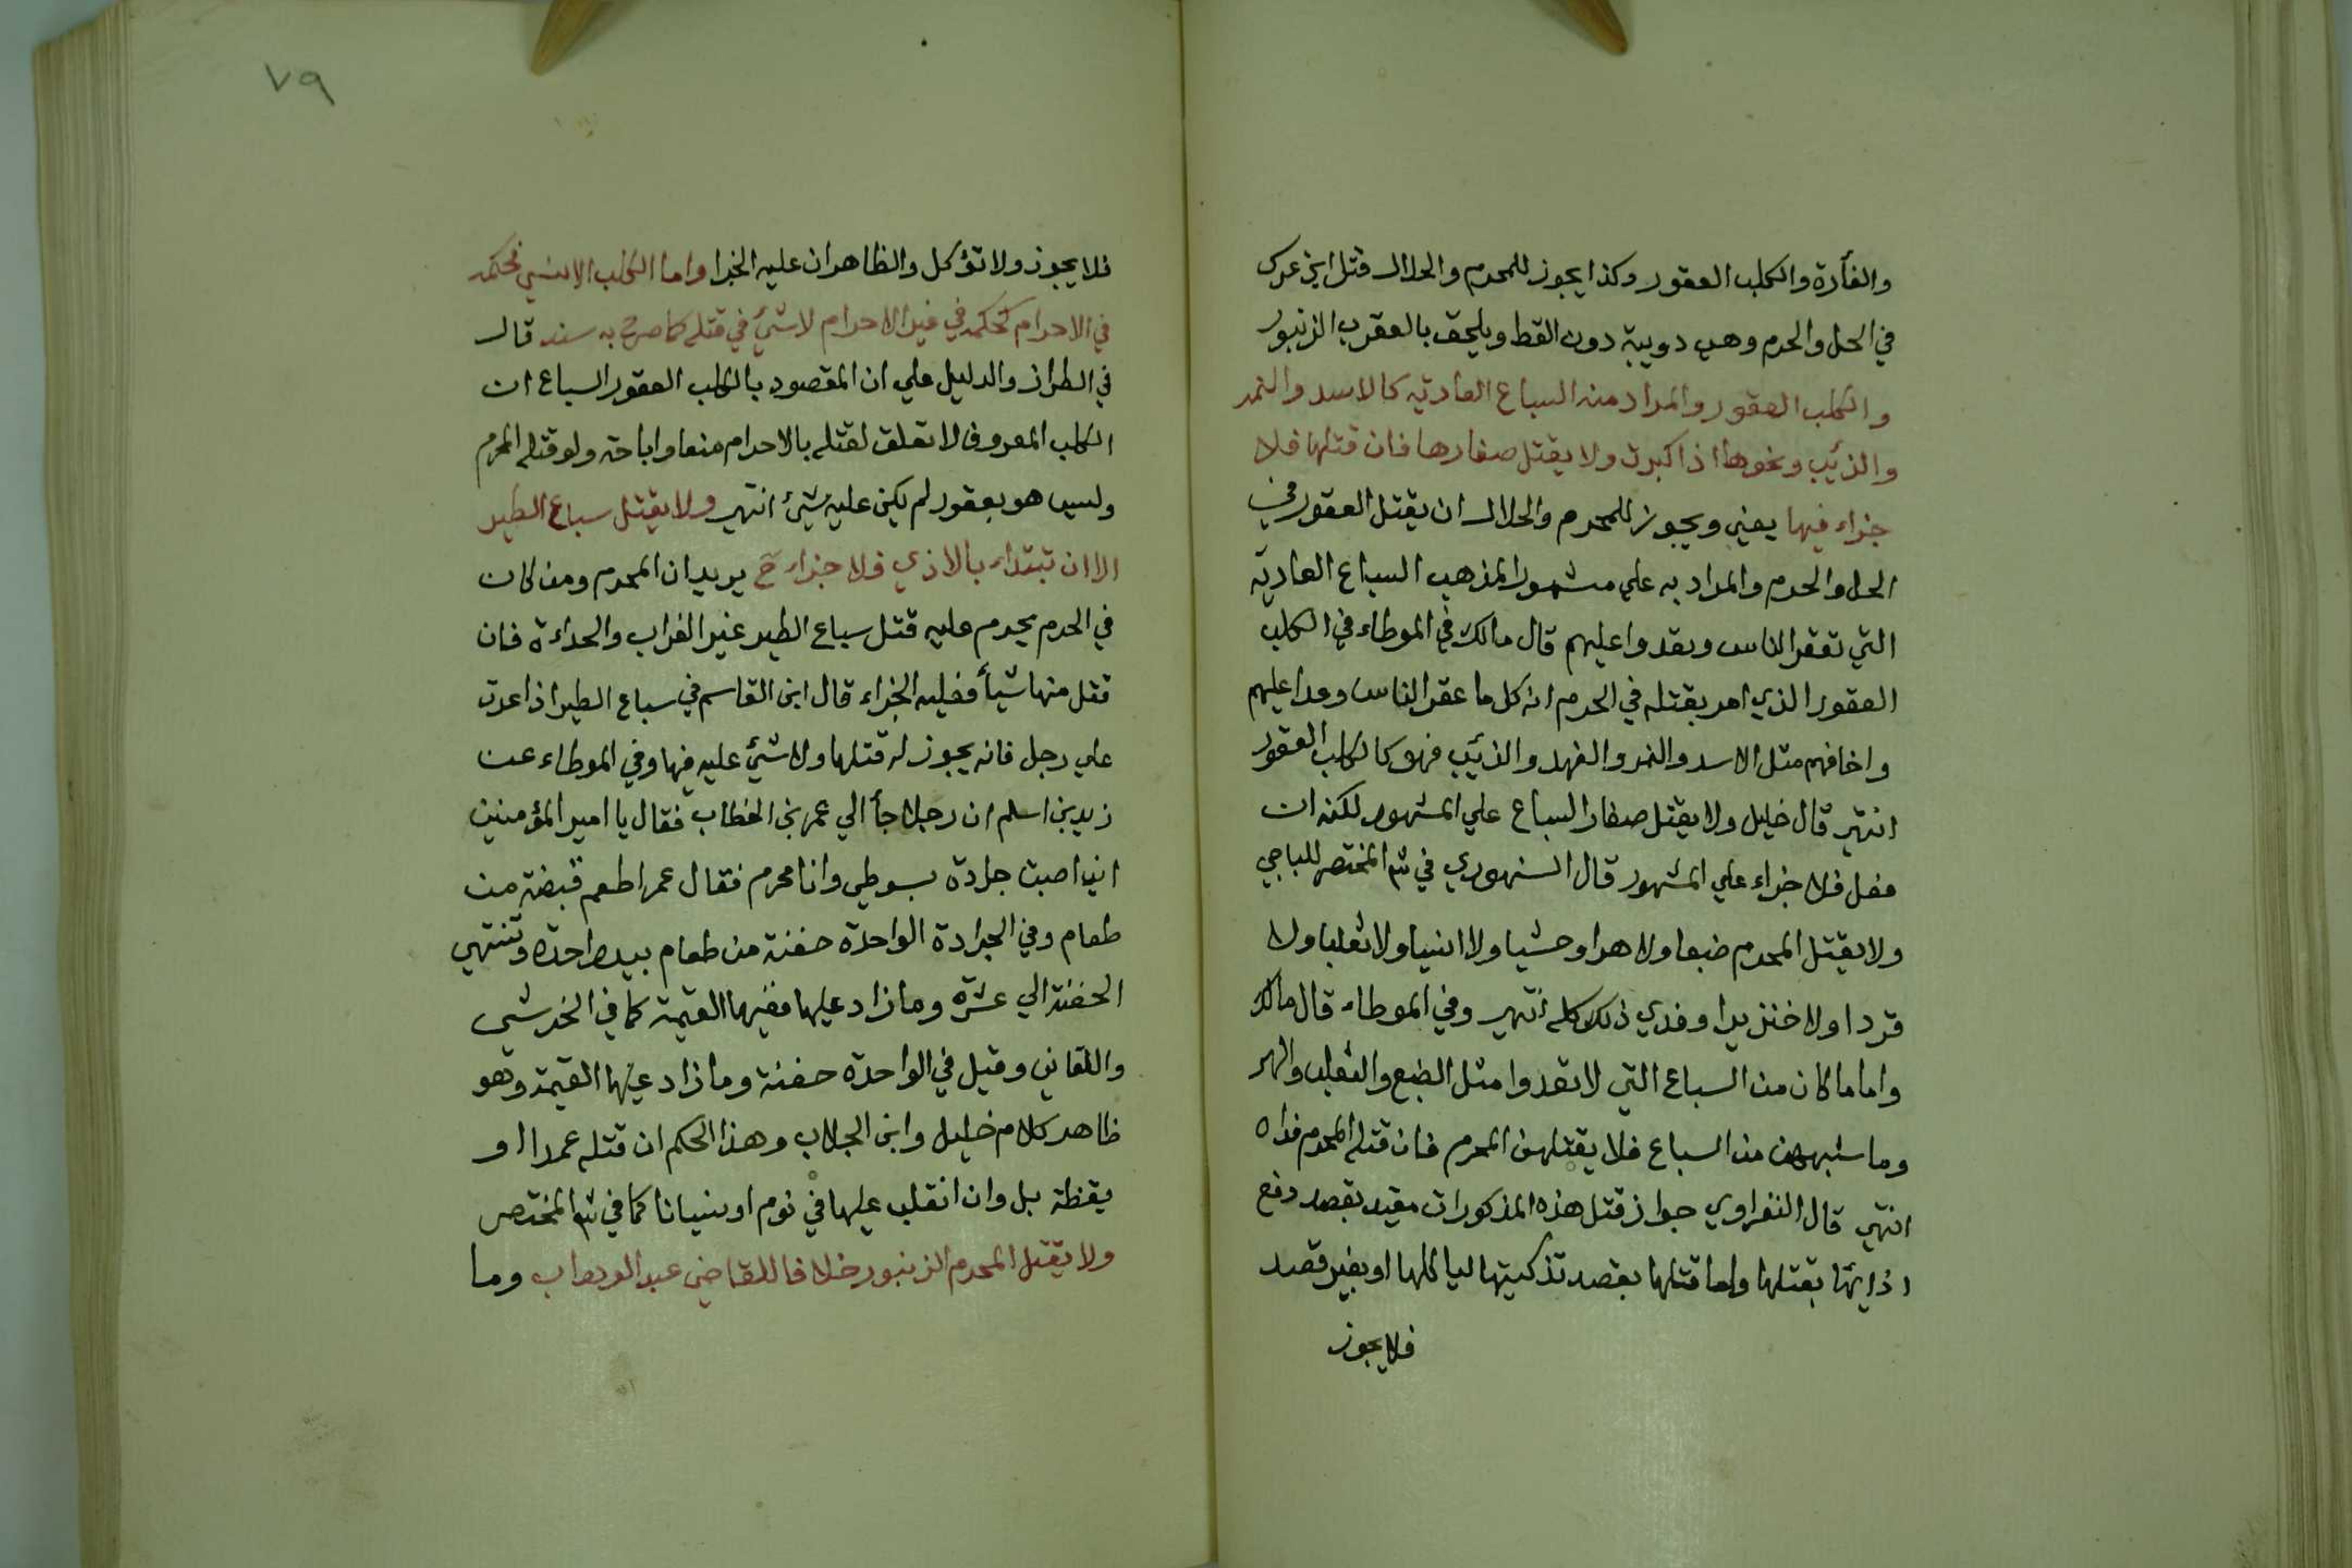 والفأرة والكلب العقور وكذا يجوز للمحرم والحلال قتل ابن عرس
في الحل والحرم وهي دويبة دون القط ويلحق بالعقرب الزنبور
والكلب العقور والمراد منه السباع العادية كالاسد والنمر
والذئب ونحوها اذا كبرت ولا يقتل صغارها فان قتلها فلا
جزاء فيها يعني ويجوز للمحرم والحلال ان يقتل العقور في
الحل والحرم والمراد به علي مشهور المذهب السباع العادية
التي تعقر الناس وبعدوا عليهم قال مالك في الموطاء في الكلب
العقور الذي امر بقتله في الحرم انه كل ما عقر الناس وعدا عليهم
واخافهم مثل الاسد والنمر والفهد والذئب فهو كالكلب العقور
انتهي قال خليل ولا يقتل صغار السباع علي المشهور لكنه ان
فعل فلا جزاء علي المشهور قال السنهوري في شر المختصر للباجي
ولا يقتل المحرم ضبعا ولا هرا وحشيا ولا انسيا ولا ثعلبا ولا
قردا ولا خنزيرا وفدي ذلك كله انتهي وفي الموطاء قال مالك
واما ما كان من السباع التي لا تعدوا مثل الضبع والثعلب والهر
وما شبههن من السباع فلا يقتلهن المحرم فان قتله المحرم فداه
انتهي قال النفراوي جواز قتل هذه المذكورات مقيد بقصد دفع
اذايتها بقتلها واما قتلها بقصد تذكيتها لياكلها او بغير قصد
فلا يجوز
٧٩
فلا يجوز ولا تؤكل والظاهر ان عليه الجزا واما الكلب الانسي فحكمه
في الاحرام كحكمه في غير الاحرام لا شئ في قتله كما صرح به سند قال
في الطراز والدليل علي ان المقصود بالكلب العقور السباع ان
الكلب المعروف لا تعلق لقتله بالاحرام منعا واباحة ولو قتله المحرم
وليس هو بعقور لم يكن عليه شئ انتهي ولا يقتل سباع الطير
الا ان تبتداء بالاذي فلا جزاء ح يريد ان المحرم ومن كان
في الحرم يحرم عليه قتل سباع الطير غير الغراب والحداءة فان
قتل منها شيأ فعليه الجزاء قال ابن القاسم في سباع الطير اذا عدت
علي رجل فانه يجوز له قتلها ولا شئ عليه فيها وفي الموطاء عن
زيد بن اسلم ان رجلا جأ الي عمر بن الخطاب فقال يا امير المؤمنين
اني اصبت جرادة بسوطي وانا محرم فقال عمر اطعم قبضة من
طعام وفي الجرادة الواحدة حفنة من طعام بيد واحدة وتنتهي
الحفنة الي عشرة وما زاد عليها ففيها القيمة كما في الخرشي
واللقاني وقيل في الواحدة حفنة وما زاد عليها القيمة وهو
ظاهر كلام خليل وابن الجلاب وهذا الحكم ان قتله عمدا او
يقظة بل وان انقلب عليها في نوم او نسيانا كما في شر المختصر
ولا يقتل المحرم الزنبور خلافا للقاضي عبد الوهاب وما